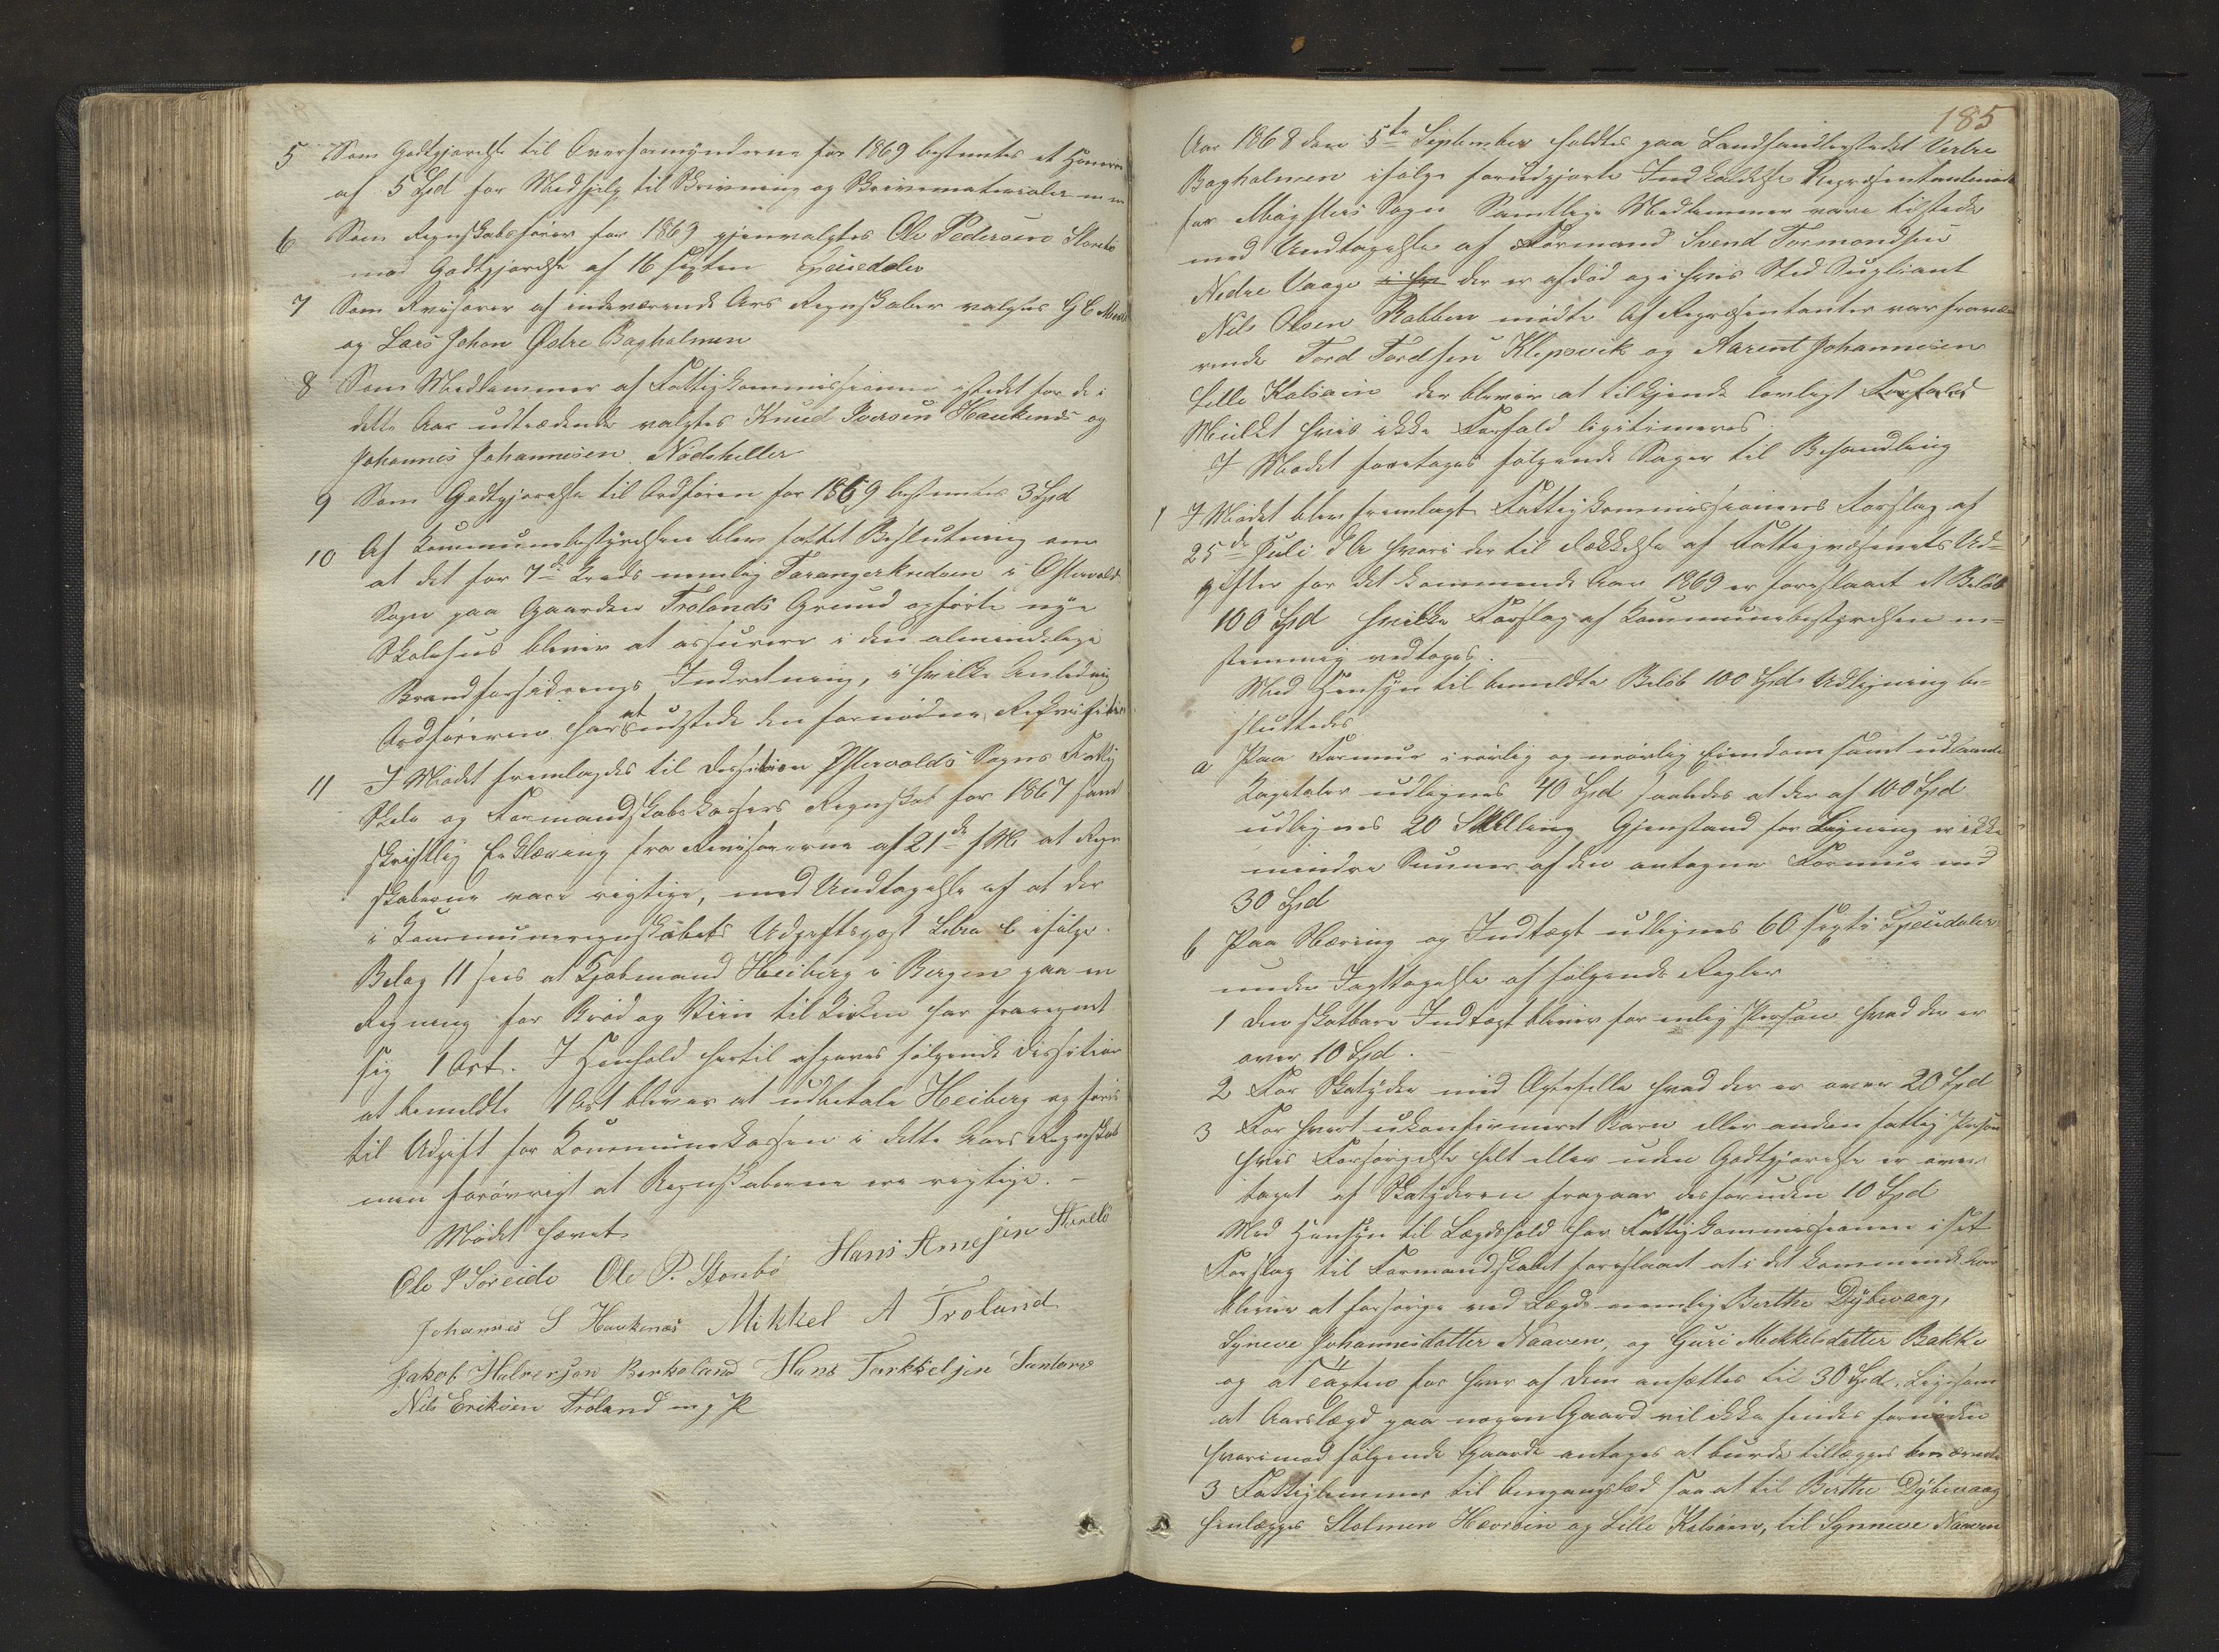 5 Som Godtgjørelse til Overformynderne for 1869 bestemtes et Honorar
af 5 Spd for Medhjelp til Skrivning og Skrivematerialer m m
6 Som Regnskabsfører for 1869 gjenvalgtes Ole Pedersen Storebø
mod Godtgjørelse af 16 sexten Speciedaler
7 Som Revisorer af indeværende Aars Regnskaber valgtes G C
og Lars Johan Østre Bagholmen
8 Som Medlemmer af Fattigkommissionen istedet for de i
dette Aar udtrædende valgtes Knud Iversen Haukenes og
Johannes Johannesen Nødeheller
9 Som Godtgjørelse til Ordføren for 1869 bestemtes 3 Spd
10 Af Kommunebestyrelsen blev fattet Beslutning om
at det for 7de Kreds nemlig Tarangerkredsen i Østervolds
Sogn paa Gaarden Trolands Grund opførte nye
Skolehus bliver at assurere i den almindelige
Brandforsikrings Indretning, i hvilke Anledning
Ordføreren har at udstede den fornødne Rekvisition
11 I Mødet fremlagdes til Desision Østervolds Sogns Fattig
Skole og Formandskabskassers Regnskab for 1867 samt
skriftlig Erklæring fra Revisorerne af 21de f M at Regn
skaberne vare rigtige, med Undtagelse af at der
i Kommuneregnskabets Udgiftspost Litra C ifølge
Bilag 11 sees at Kjøbmand Heiberg i Bergen paa en
Regning for Brød og Viin til Kirken har fraregnet
sig 1 Ort. I Henhold hertil afgaves følgende Dessition
at bemeldte 1 Ort bliver at udbetale Heiberg og føres
til Udgift for Kommunekassen i dette Aars Regnskab
men forøvrigt at Regnskaberne ere rigtige. –
Mødet hævet
Ole P Søreide Ole P. Storebø Hans Arnesen Storebø
Johannes S Haukenæs Mikkel A Troland
Jakob Halversen Birkeland Hans Torkkelsen
Nils Eriksen Troland m p P
185
Aar 1868 den 5te September holdtes paa Landhandlerstedet Vestre
Bagholmen ifølge forudgjorte Indkaldelse Repræsentantmøde
for Møgsters Sogn Samtlige Medlemmer vare tilstede
med Undtagelse af Formand Svend Tormondsen
Nedre Vaage i hv der er afdød og i hvis Sted Supliant
Nils Olsen Rabben mødte Af Repræsentanter var fravæ
rende Tord Tordsen Klepsvik og Aarent Johannesen
Lille Kalsøin der bliver at tilkjende lovligt Forfald
Mulkt hvis ikke Forfald ligitimeres.
I Mødet foretoges følgende Sager til Behandling
1 I Mødet blev fremlagt Fattigkommissionens Forslag af
25de Juli d A hvori der til Dækkelse af Fattigvæsenets Ud=
gifter for det kommende Aar 1869 er foreslaaet et Beløb
100 Spd hvilke Forslag af Kommunebestyrelsen en=
stemmig vedtoges.
Med Hensyn til bemeldte Beløb 100 Spds Udligning be=
sluttedes
a Paa Formue i rørlig og urørlig Eiendom samt udlaante
Kapitaler udlignes 40 Spd saaledes at der af 100 Spd
udlignes 20 Skilling Gjenstand for Ligning er ikke
mindre Summer af den antagne Formue end
30 Spd
b Paa Næring og Indtægt udlignes 60 sexti Speciedaler
under Iagttagelse af følgende Regler
1 Den skatbare Indtægt bliver for enlig Person hvad der er
over 10 Spd. –
2 For Skatyder med Ægtefelle hvad der er over 20 Spd
3 For hvert ukonfirmeret Barn eller anden fattig Person
hvis Forsørgelse helt eller uden Godtgjørelse er over
taget af Skatyderen fragaar desforuden 10 Spd
Med Hensyn til Lægdshold har Fattigkommissionen i sit
Forslag til Formandskabet foreslaaet at i det kommende Aar
bliver at forsørge ved Lægd nemlig Berthe Dybevaag,
Synneve Johannesdatter Naaven, og Guri Mekkelsdatter Bakke
og at Taxten for hver af dem ansættes til 30 Spd. Ligesom
at Aarslægd paa nogen Gaard vil ikke findes fornøden
hvorimod følgende Gaarde antages at burde tillægges benævnte
3 Fattiglemmer til Omgangslæd saa at til Berthe Dybevaag
henlægges Stolmen Hevrøin og Lille Kalsøin, til Synneve Naaven